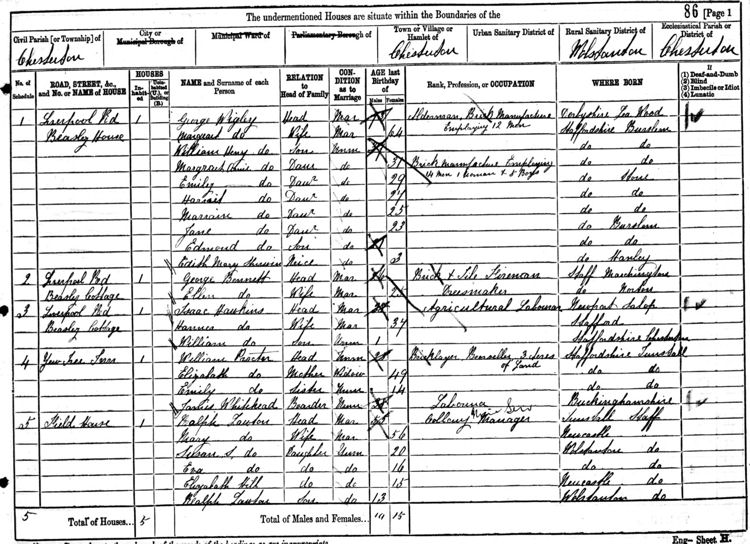 The undermentioned Houses are situate within the Boundaries of the 86 [Page 1
Civil Parish [or Township] of City or Municipal Borough of Municipal Ward of Parliamentary Borough of Town or Village or Hamlet of Urban Sanitary District of Rural Sanitary District of Ecclesiastical Parish or District of
Chesterton Chesterton Wolstanton Chesterton
No. of Schedule ROAD, STREET, &c., and No. or NAME of HOUSE HOUSES Inhabited Uninhabited (U.), or Building (B.) NAME and Surname of each Person RELATION to Head of Family CONDITION as to Marriage AGE last Birthday of Males Females Rank, Profession, or OCCUPATION WHERE BORN If (1) Deaf-and-Dumb (2) Blind (3) Imbecile or Idiot (4) Lunatic
1 Liverpool Rd 1 George Wigley Head Mar Alderman, Brick Manufacture Derbyshire Lea Wood
Beasley House Margaret do Wife Mar 64 Employing 12 Men Staffordshire Burslem
William Henry do Son Unm do do
Margrach Annie do Daur do 31 Brick Manufacture Employing do do
Emily do Daur do 29 14 Men 1 Woman & 8 Boys do Stone
Harriait do Daur do 27 do do
Marrain do Daur do 25 do do
Jane do Daur do 23 do Burslem
Edmond do Son do do do
Edith Mary do Niece do 3 do Hanley
2 Liverpool Rd 1 George Bennett Head Mar Brick & Tile Foreman Staff
Beasley Cottage Ellen do Wife Mar Dressmaker do Norton
3 Liverpool Rd 1 Isaac Hawkins Head Mar Agricultural Labourer Newport Salop
Beasley Cottage Hannes do Wife Mar 37 Stafford
William do Son Unm 1 Staffordshire Chesterton
4 Yew Tree Farm 1 William Proctor Head Unm Bricklayer 3 Acres of Land Staffordshire Tunstall
Elizabeth do Mother Widow 49 do do
Emily do Sister Unm 14 do do
James Whitehead Boarder Unm Labourer Buckinghamshire
5 Field House 1 Ralph Lawton Head Mar Colliery Manager Tunstall Staff
Mary do Wife Mar 56 Newcastle
Susan S. do Daughter Unm 20 Wolstanton do
Eva do do do 16 do do
Elizabeth Hill do do 15 Newcastle do
Ralph Lawton Son do 13 Wolstanton do
5 Total of Houses... 5 Total of Males and Females... 10 15
Eng— Sheet H.